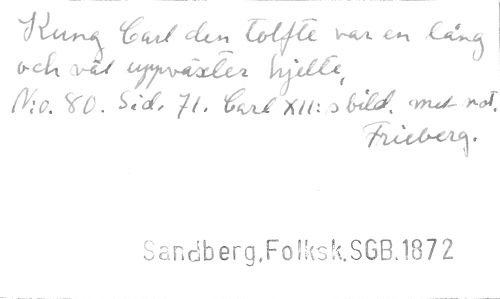 Kung Carl den tolfte var en lång
och väl uppväxter hjelte,
N:o. 80. Sid. 71. Carl XII:s bild. met not.
Frieberg.
Sandberg, Folksk. SGB. 1872